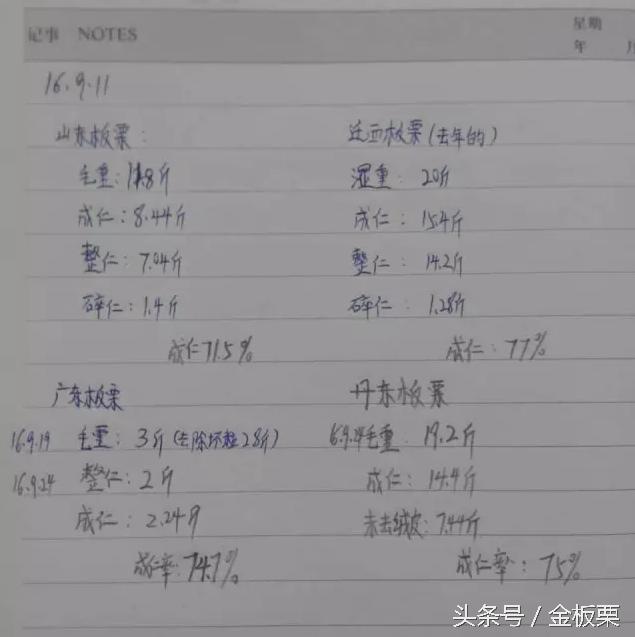 记事 NOTES
星期
年 月
16.9.11
山东板栗:
毛重:11.8斤
成仁:8.44斤
整仁:7.04斤
碎仁:1.4斤
成仁71.5%
迁西板栗(去年的)
湿重:20斤
成仁:15.4斤
整仁:14.2斤
碎仁:1.28斤
成仁:77%
广东板栗
16.9.19 毛重:3斤(去除坏粒2.8斤)
16.9.24 整仁:2斤
成仁:2.24斤
成仁率:74.7%
丹东板栗
毛重 19.2斤
成仁:14.4斤
未去绒皮:7.44斤
成仁率:75%
头条号 / 金板栗